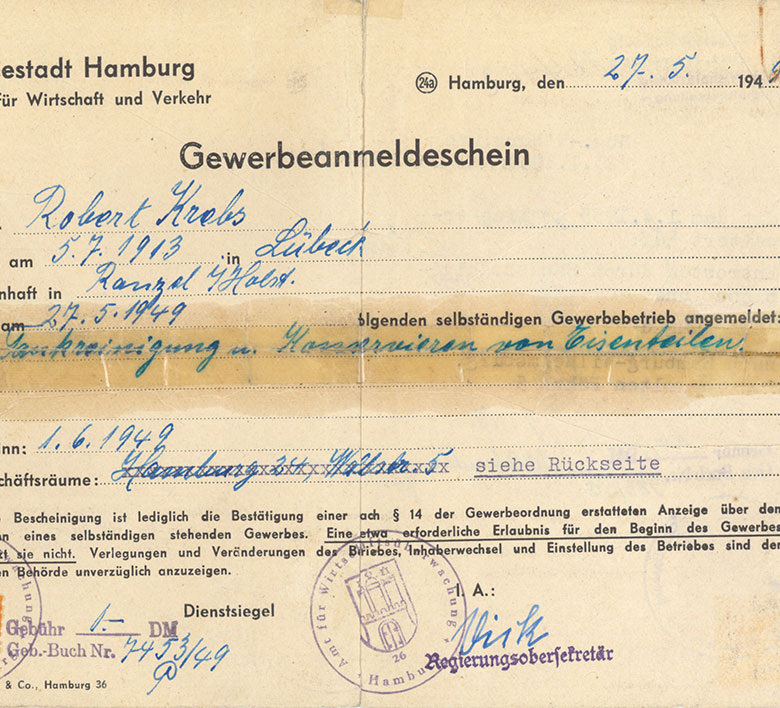 estadt Hamburg
24a Hamburg, den 27. 5. 1949
für Wirtschaft und Verkehr
Gewerbeanmeldeschein
Robert Krebs
am 5.7.1913 in Lübeck
nhaft in Ranzel i/Holst.
am 27.5.1949 olgenden selbständigen Gewerbebetrieb angemeldet:
Tankreinigung u. Konservieren von Eisenteilen.
nn: 1.6.1949
chäftsräume: Hamburg 24, 5 siehe Rückseite
Bescheinigung ist lediglich die Bestätigung einer ach § 14 der Gewerbeordnung erstatteten Anzeige über den
n eines selbständigen stehenden Gewerbes. Eine etwa erforderliche Erlaubnis für den Beginn des Gewerbes
t sie nicht. Verlegungen und Veränderungen des Betriebes, Inhaberwechsel und Einstellung des Betriebes sind der
en Behörde unverzüglich anzuzeigen.
Dienstsiegel
I. A.:
Amt für Wirtschaftsüberwachung
26
Hamburg
Gebühr 1.- DM
Geb.-Buch Nr. 7453/49
Regierungsobersekretär
& Co., Hamburg 36